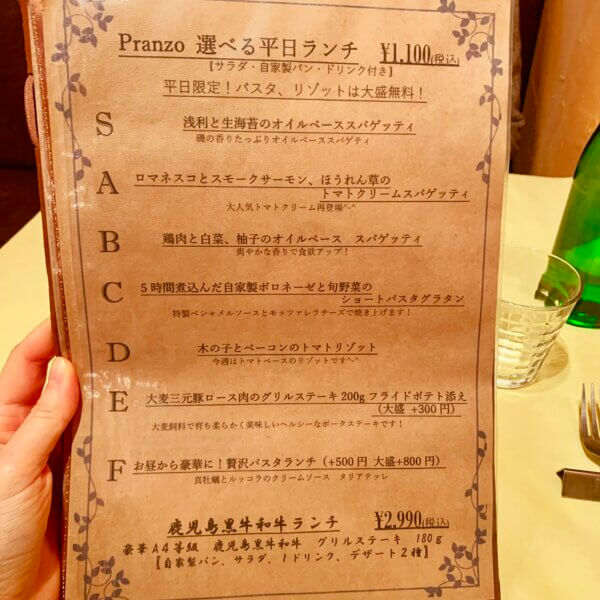 Pranzo 選べる平日ランチ ¥1,100(税込)
【サラダ・自家製パン・ドリンク付き】
平日限定！パスタ、リゾットは大盛無料！
S 浅利と生海苔のオイルベーススパゲッティ
磯の香りたっぷりオイルベーススパゲティ
A ロマネスコとスモークサーモン、ほうれん草の
トマトクリームスパゲッティ
大人気トマトクリーム再登場^-^
B 鶏肉と白菜、柚子のオイルベース スパゲッティ
爽やかな香りで食欲アップ！
C 5時間煮込んだ自家製ボロネーゼと旬野菜の
ショートパスタグラタン
特製ベシャメルソースとモッツァレラチーズで焼き上げます！
D 木の子とベーコンのトマトリゾット
今週はトマトベースのリゾットです^-^
E 大麦三元豚ロース肉のグリルステーキ 200g フライドポテト添え
(大盛 +300円)
大麦飼料で育ち柔らかく美味しいヘルシーなポークステーキです！
F お昼から豪華に！贅沢パスタランチ (+500円 大盛+800円)
真牡蠣とルッコラのクリームソース タリアテッレ
鹿児島黒牛和牛ランチ ¥2,990(税込)
豪華A4等級 鹿児島黒牛和牛 グリルステーキ 180g
【自家製パン、サラダ、1ドリンク、デザート2種】